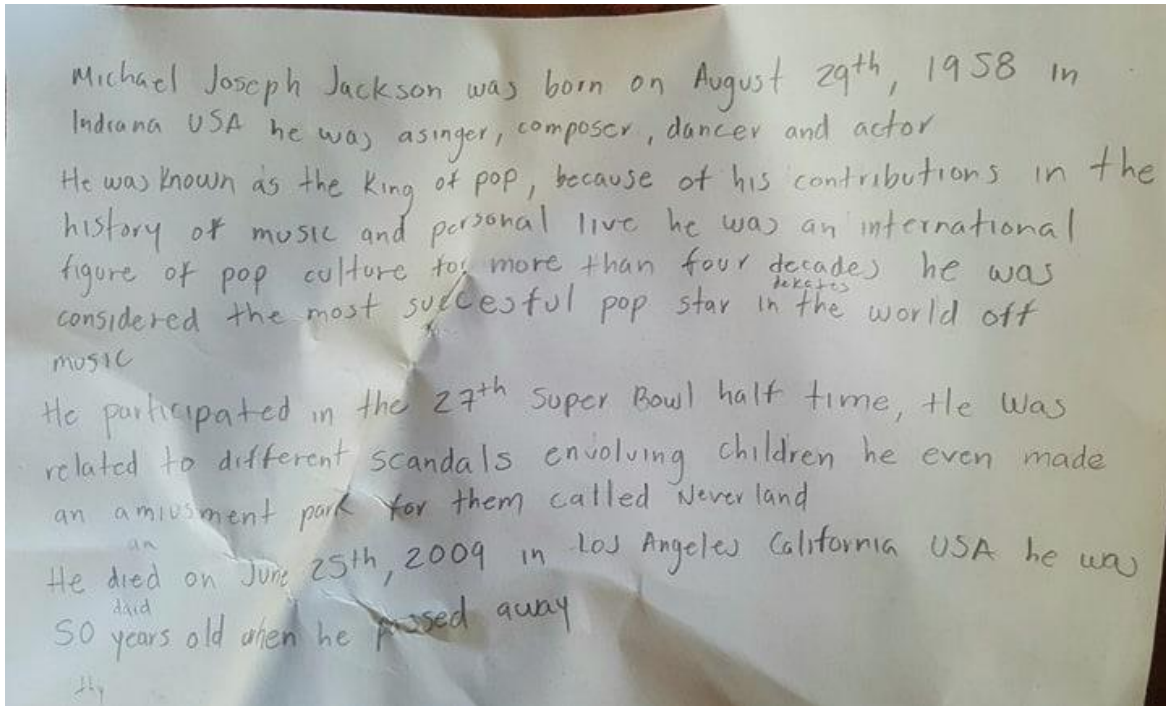 Michael Joseph Jackson was born on August 29th, 1958 in
Indiana USA he was asinger, composer, dancer and actor
He was known as the King of pop, because of his contributions in the
history of music and personal live he was an international
figure of pop culture for more than four decades he was
dekates
considered the most succesful pop star in the world off
music
He participated in the 27th Super Bowl half time, He was
related to different scandals envolving children he even made
an amiusment park for them called Never land
an
He died on June 25th, 2009 in Los Angeles California USA he was
daid
50 years old when he passed away